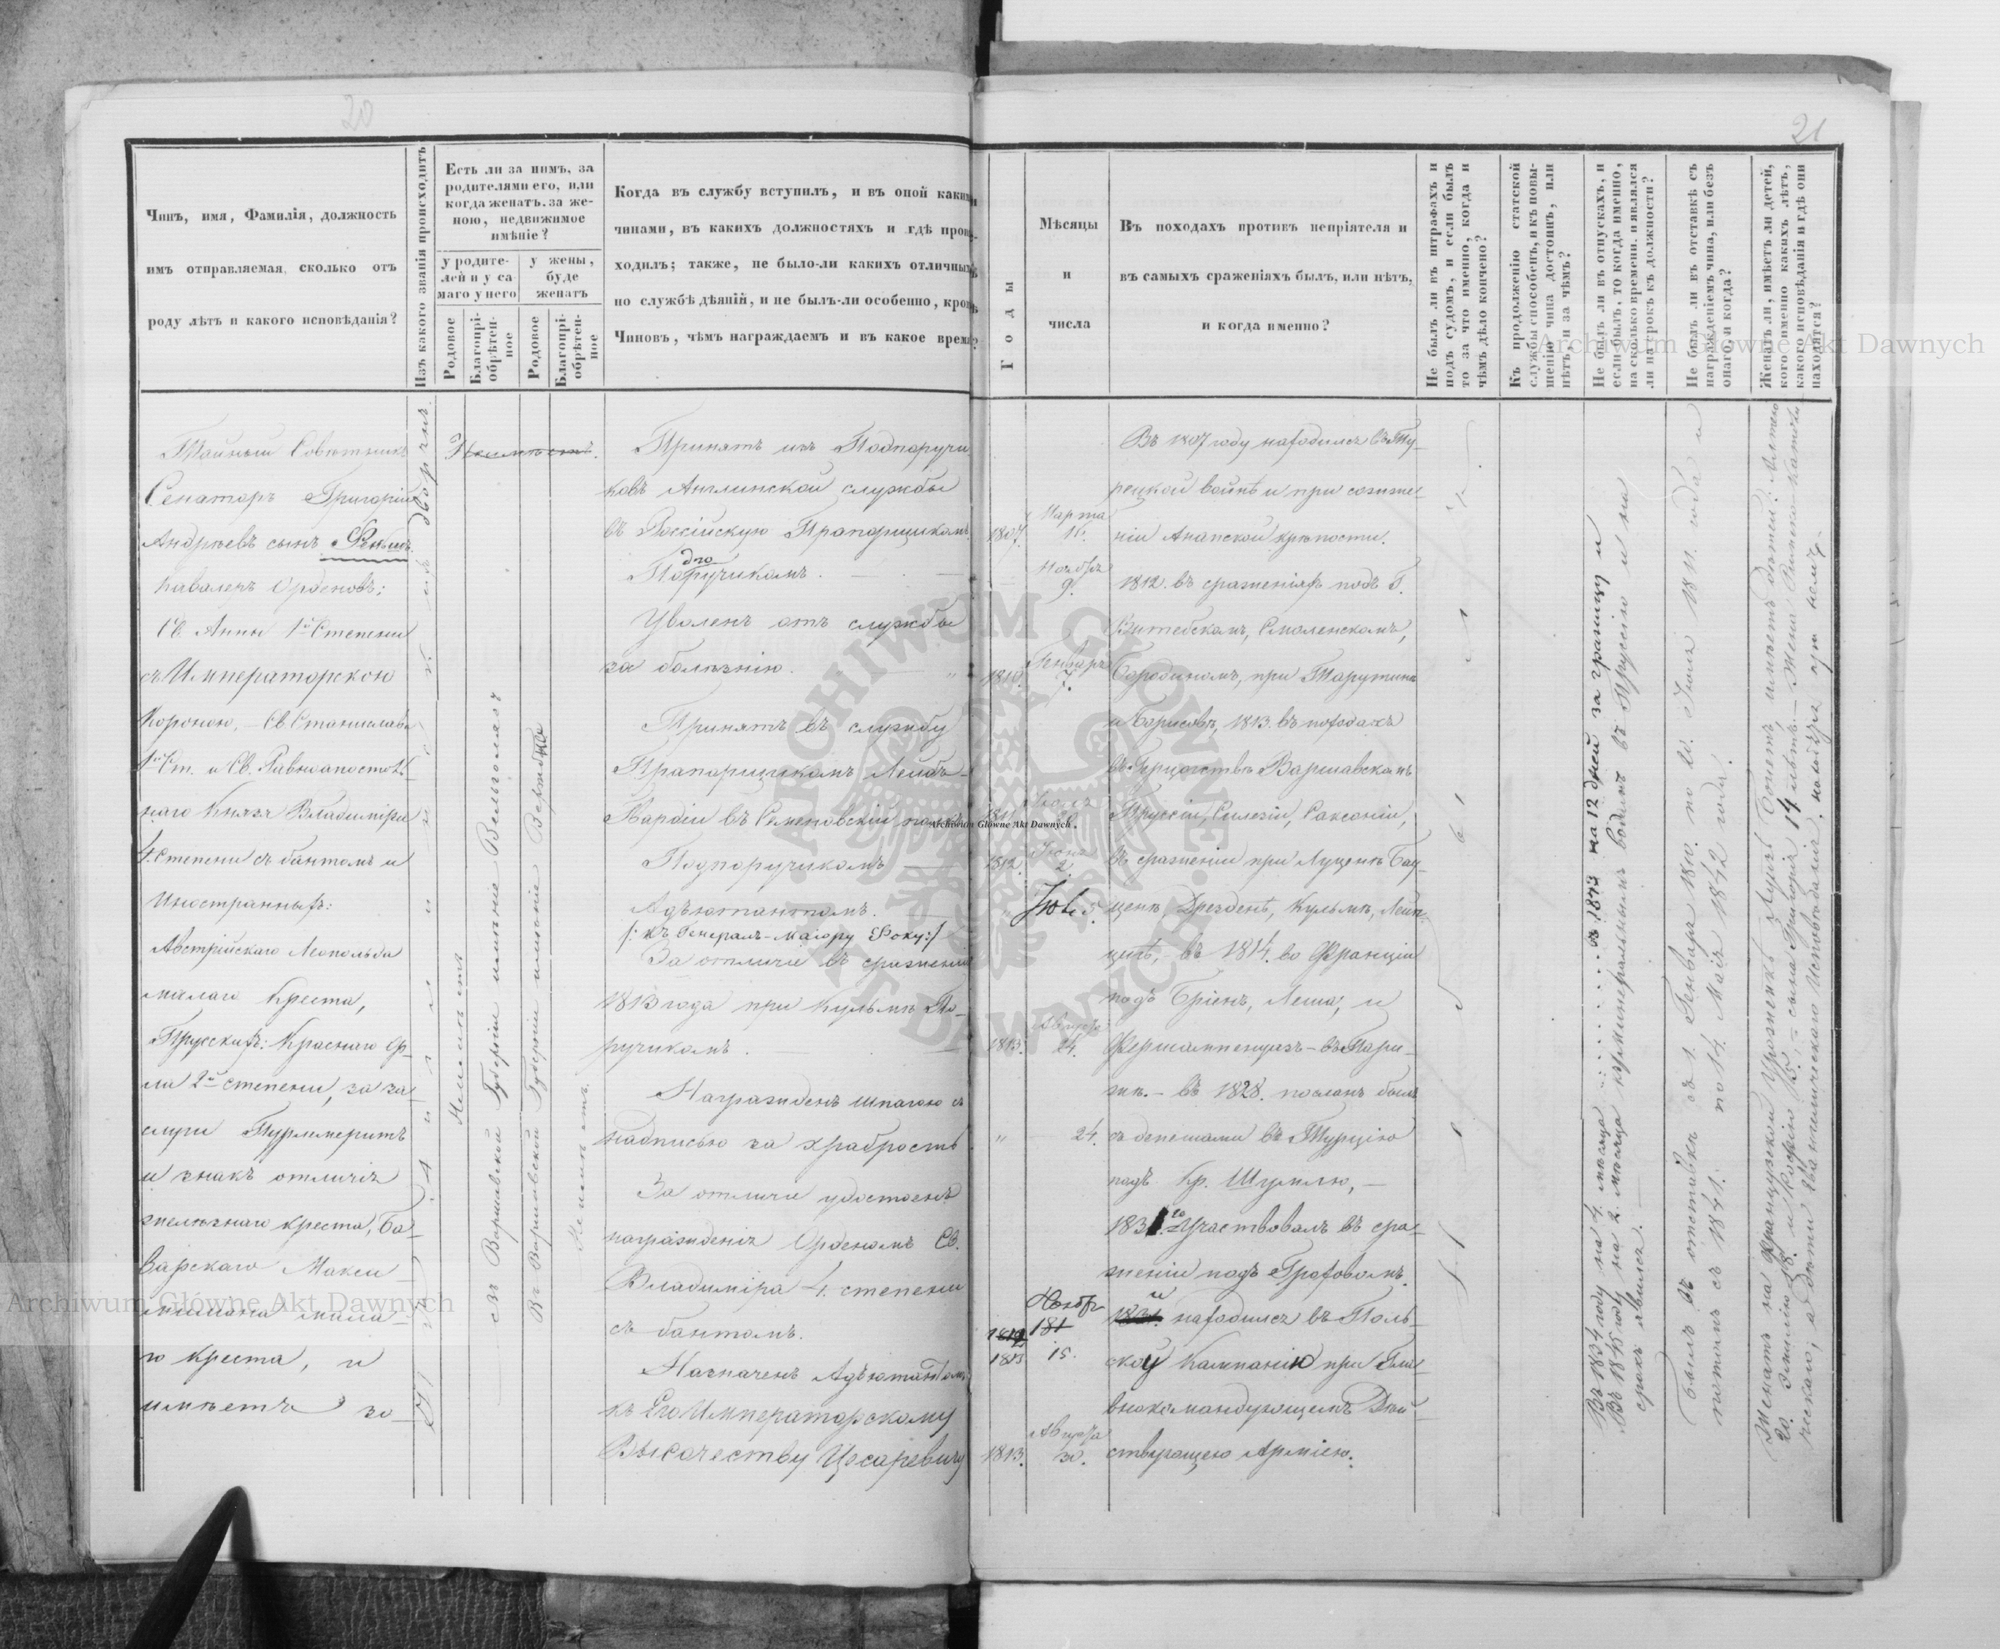 20
21
Чинъ, имя, Фамилія, должность
имъ отправляемая, сколько отъ
роду лѣтъ и какого исповѣданія?
Изъ какого званія происходитъ
Есть ли за нимъ, за
родителями его, или
когда женатъ, за же-
ною, недвижимое
имѣніе?
у родите-
лей и у са-
маго у него
у жены,
буде
женатъ
Родовое
Благопрі-
обрѣтен-
ное
Родовое
Благопрі-
обрѣтен-
ное
Когда въ службу вступилъ, и въ оной какими
чинами, въ какихъ должностяхъ и гдѣ прохо-
ходилъ; также, не было-ли какихъ отличныхъ
по службѣ дѣяній, и не былъ-ли особенно, кромѣ
Чиновъ, чѣмъ награждаемъ и въ какое время?
Годы
Мѣсяцы
и
числа
Въ походахъ противъ непріятеля и
въ самыхъ сраженіяхъ былъ, или нѣтъ,
и когда именно?
Не былъ ли въ штрафахъ и
подъ судомъ, и если былъ
то за что именно, когда и
чѣмъ дѣло кончено?
Къ продолженію статской
службы способенъ, и къ повы-
шенію чина достоинъ, или
нѣтъ, и за чѣмъ?
Не былъ ли въ отпускахъ, и
если былъ, то когда именно,
на сколько времени, и явился
ли на срокъ къ должности?
Не былъ ли въ отставкѣ съ
награжденіемъ чина, или безъ
онаго, и когда?
Женатъ ли, имѣетъ ли дѣтей,
кого именно, какихъ лѣтъ,
какого исповѣданія и гдѣ они
находятся?
Тайный Совѣтникъ
Сенаторъ Григорій
Андреевъ сынъ
Кавалеръ Орденовъ:
Св. Анны 1й Степени
съ Императорскою
Короною, – Св. Станислава
1й Ст. и Св. Равноапостоль-
наго Князя Владиміра
4 Степени съ бантомъ и
Иностранныхъ:
Австрійскаго Леопольда
малаго Креста,
Прусскихъ: Краснаго Ор-
ла 2й степени, за за-
слуги Пурлемеритъ
и знакъ отличія
желѣзнаго креста, Ба-
варскаго Макси-
миліана мала-
го креста, и
имѣетъ зо-
Неимѣетъ.
Неимѣетъ
въ Варшавской Губерніи имѣніе
въ Варшавской Губерніи имѣніе
Неимѣетъ.
Принятъ изъ Подпоручи-
ковъ Англинской службы
въ Россійскую Прапорщикомъ
1807.
Марта
16.
Поручикомъ. —
Ноября
9.
Уволенъ отъ службы
за болѣзнію.
1810.
Генваря
7.
Принятъ въ службу
Прапорщикомъ Лейбъ-
Гвардіи въ Семеновскій полкъ
Подпоручикомъ —
1812.
Адъютантомъ. —
/: къ Генералъ-Маіору Фоку:/
За отличіе въ сраженіи
1813 года при Кульмѣ По-
ручикомъ. —
1813.
Августа
24.
Награжденъ шпагою съ
надписью за храбрость
"
24.
За отличіе удостоенъ
награжденія Орденомъ Св.
Владиміра 4. степени
съ бантомъ.
1813
15.
Назначенъ Адъютантомъ
къ Его Императорскому
Высочеству Цесаревичу
1813.
Августа
30.
Въ 1807 году находился въ Ту-
рецкой войнѣ и при сожже-
ніи Анапской крѣпости.
1812. въ сраженіяхъ подъ Г.
Витебскомъ, Смоленскомъ,
Бородиномъ, при Тарутинѣ
и Борисовѣ, 1813. въ походахъ
въ Герцогствѣ Варшавскомъ
Пруссіи, Силезіи, Саксоніи,
въ сраженіи при Луценѣ Бау-
ценѣ, Дрезденѣ, Кульмѣ, Лейп-
цигѣ, – въ 1814. во Франціи
подъ Бріенъ, Леша, и
Фершампенуазъ – въ Пари-
жѣ. – въ 1828. посланъ былъ
съ депешами въ Турцію
подъ Кр. Шумлю, —
1831го участвовалъ въ сра-
женіи подъ Гроховомъ.
находился въ Поль-
ской Кампаніи при Гла-
внокомандующемъ Дѣй-
ствующею Арміею.
Въ 1834 году на 4. мѣсяца ........ въ 1843 на 12 дней за границу и
Въ 1845 году на 2. мѣсяца къ минеральнымъ водамъ въ Пруссію и на
срокъ явился.
Былъ въ отставкѣ съ 1. Генваря 1810. по 20. Іюля 1811. года и
потомъ съ 1841. по 14. Мая 1842 года.
Женатъ на Французской Уроженкѣ имѣетъ дѣтей:
сына Григорія 14 лѣтъ. – Жена Римско-Католи-
ческаго, а дѣти Евангелическаго Исповѣданія, находятся при немъ.
Archiwum Główne Akt Dawnych
Archiwum Główne Akt Dawnych
Archiwum Główne Akt Dawnych
ARCHIWUM GŁÓWNE AKT DAWNYCH